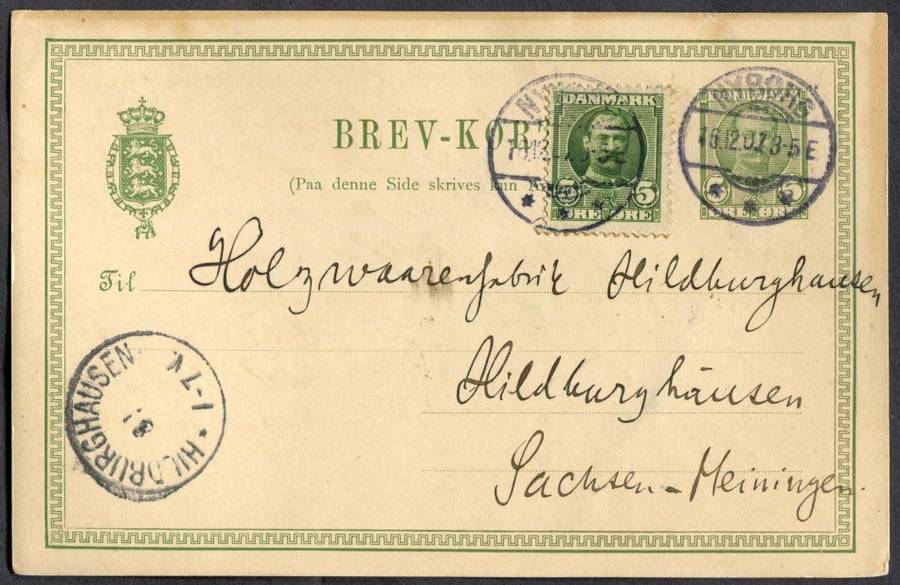 BREV-KOR
(Paa denne Side skrives kun
DANMARK
5 5
ØRE ØRE
16.12.07. 3-5 E
5 5
ØRE ØRE
Til Holzwaarenfabrik Hildburghausen
Hildburghäusen
Sachsen-Meiningen.
HILDBURGHAUSEN
18